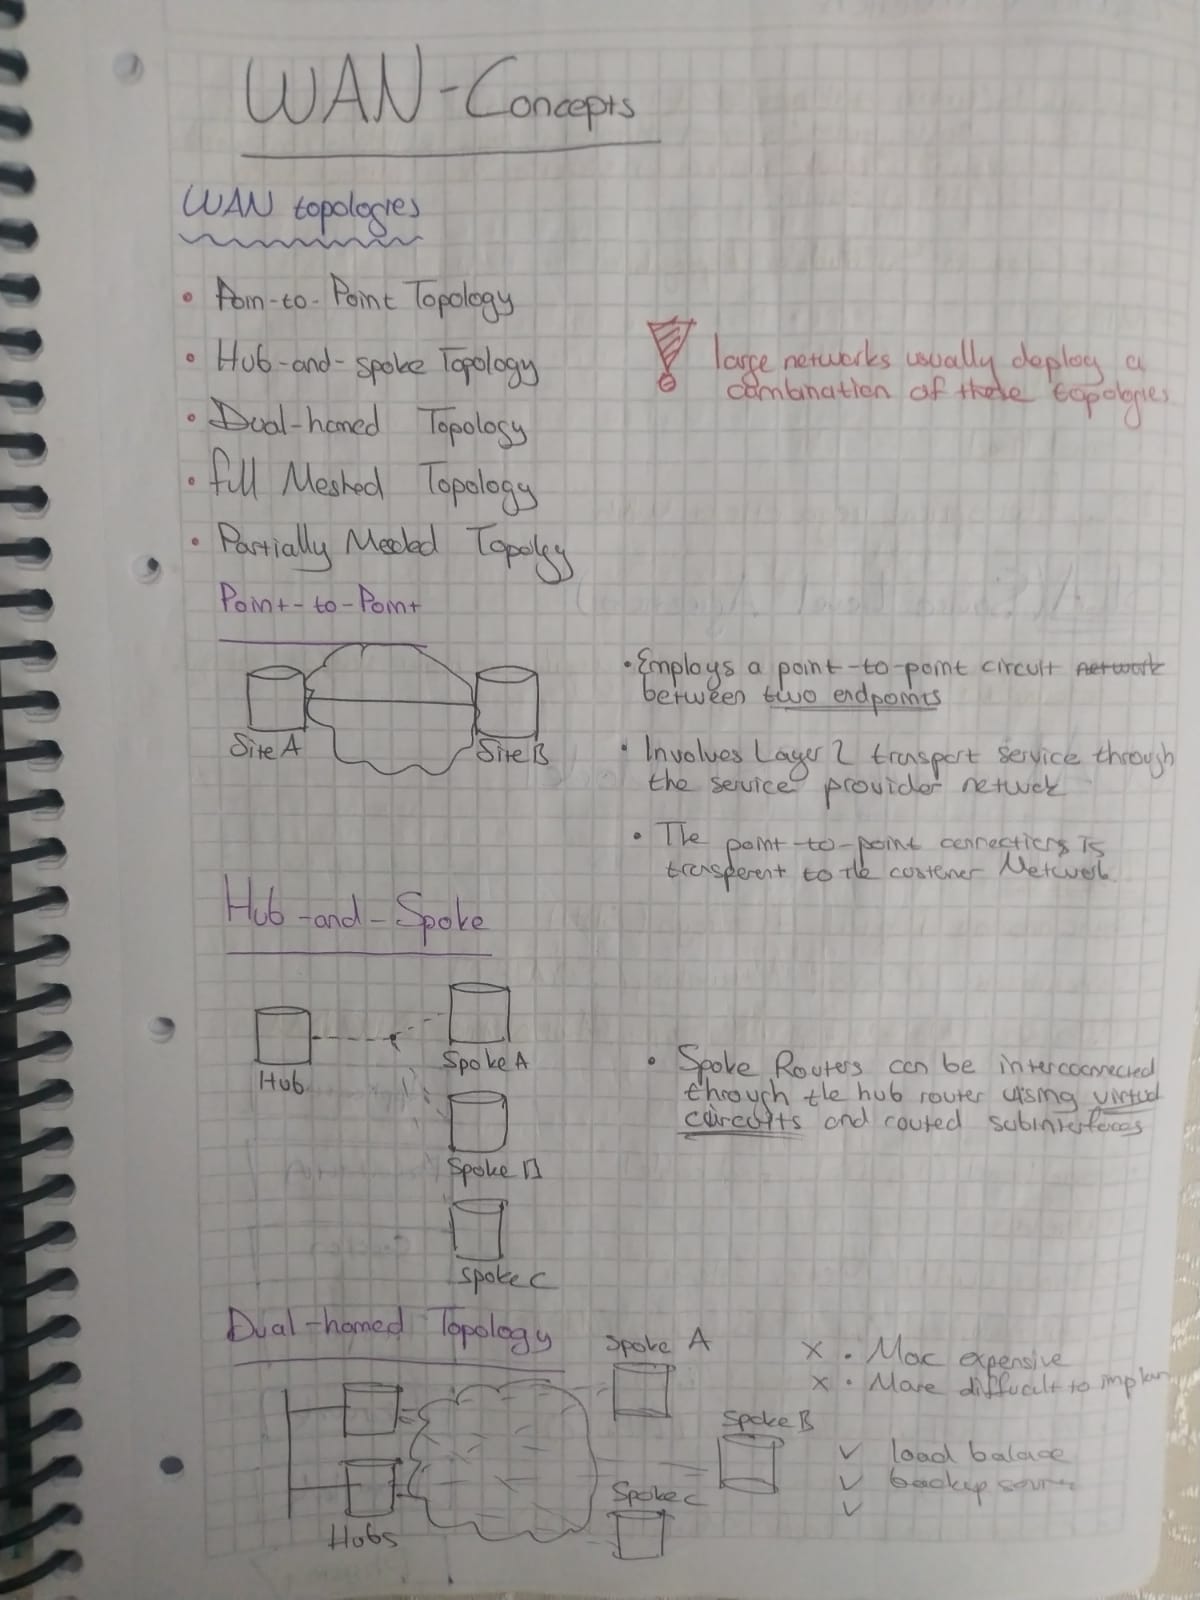 WAN-Concepts
WAN topologies
• Poin-to-Point Topology
• Hub-and-spoke Topology
• Dual-homed Topology
• full Meshed Topology
• Partially Meshed Topolgy
large networks usually deploy a
combination of these topologies
Point-to-Point
Site A
Site B
• Employs a point-to-point circuit network
between two endpoints
• Involves Layer 2 transport service through
the service provider network
• The point-to-point connections is
transparent to the customer Network
Hub-and-Spoke
Hub
Spoke A
Spoke B
Spoke C
• Spoke Routers can be interconnected
through the hub router using virtual
circuits and routed subinterfaces
Dual-homed Topology
Hubs
Spoke A
Spoke B
Spoke C
x • More expensive
x • More difficult to
✓ load balace
✓ backup
✓